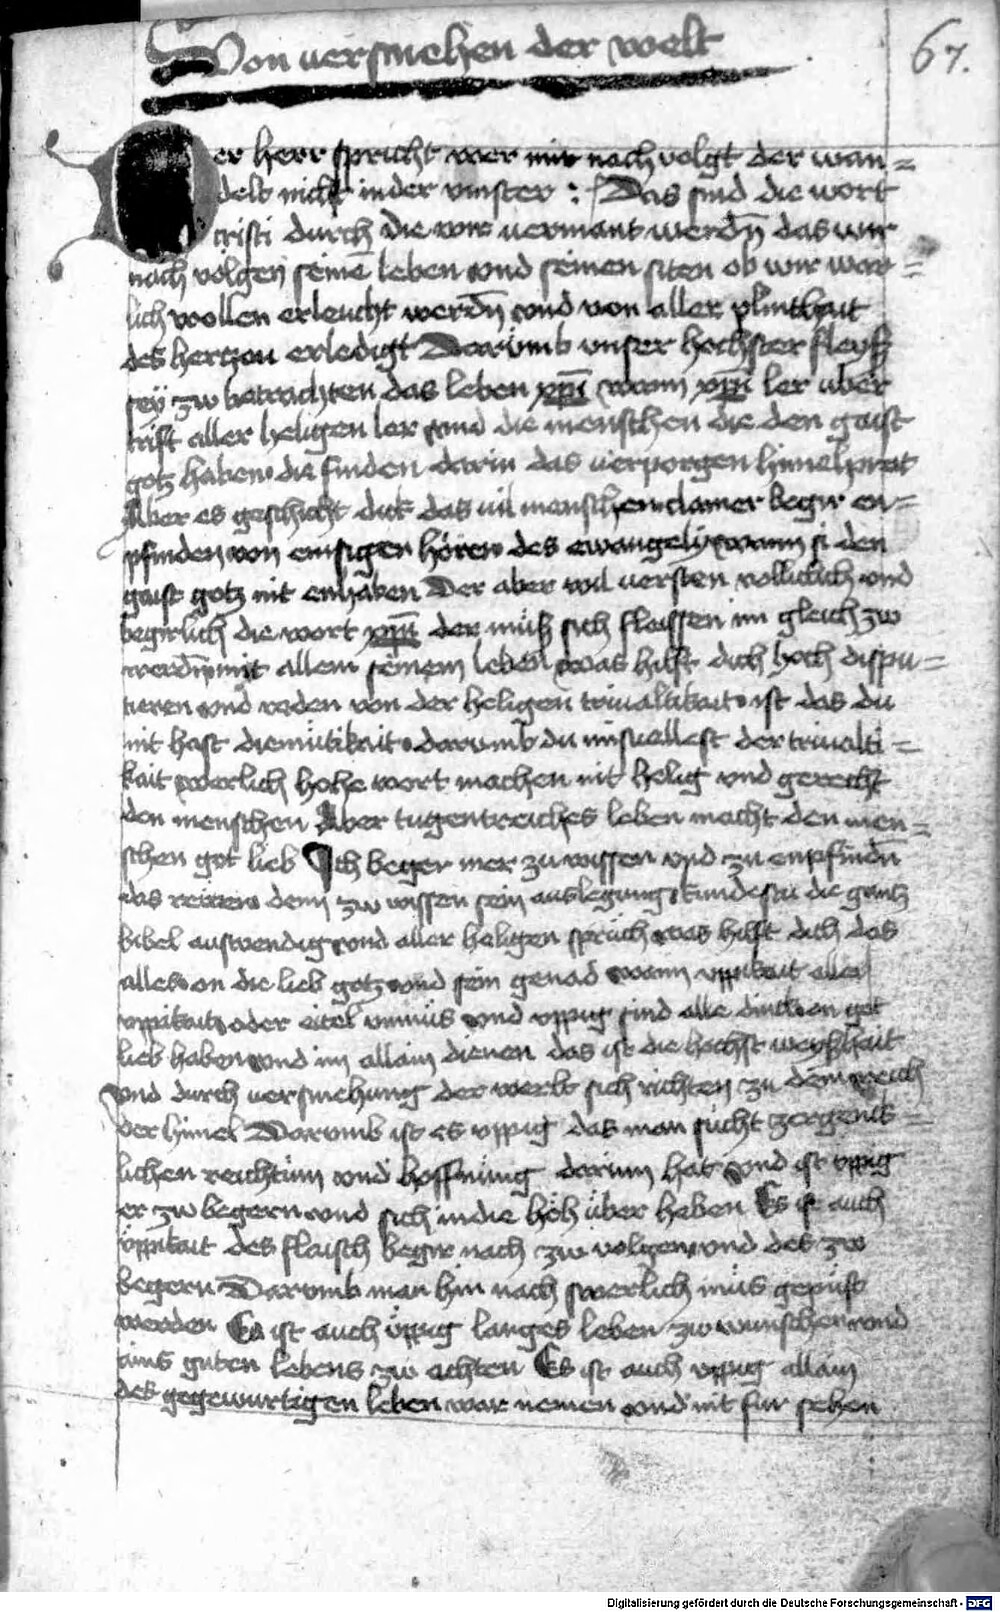 Von versmehen der welt
67.
Der herr spricht wer mir nach volgt der wan=
delt nicht in der vinster : Das sind die wort
cristi durch die wir vermant werdn̄ das wir
nach volgen seinē leben vnd seinen siten ob wir war=
lich wollen erleucht werdn̄ vnd von aller plinthait
des hertzen erledigt Darvmb vnser hochster fleyß
sey zw betrachten das leben xp̄i wann xp̄i ler uber
trift aller heligen ler vnd die menschen die den gaist
gotz haben die finden darin das verporgen himelprot
Aber es geschicht dick das vil menschen clainer begir en=
pfinden von emsigen hören des ewangely wann si den
gaist gotz nit enhaben Der aber wil versten vollicklich vnd
begirlich die wort xp̄i der müß sich fleissen im gleich zw
werdn̄ mit allem seinem leben was hilft dich hoch dispu=
tieren vnd reden von der heligen triualtikait ist das du
nit hast diemütikait darumb du missuellest der triualti=
kait werlich hohe wort machen nit helig vnd gerecht
den menschen Aber tugentreiches leben macht den men=
schen got lieb Ich beger mer zu wissen vnd zu enpfindn̄
das reiwen denn zw wissen sein auslegung kundestu die gantz
bibel auswendig vnd aller heligen sprüch was hilft dich das
alles on die lieb gotz vnd sein genad wann vppikait aller
vppikait oder eitel vnnüs vnd vppig sind alle dinck on got
lieb haben vnd im allain dienen das ist die hochst weyßhait
vnd durch versmehung der werlt sich richten zu dem reich
der himel Darvmb ist es vppig das man sücht zergenck=
lichen reichtum vnd hoffnung darinn hat vnd ist vppig
er zw begern vnd sich in die höh über heben Es ist auch
üppikait des flaisch begir nach zw volgen vnd des zw
begern Darvmb man hin nach swerlich müs gepüst
werden Es ist auch üppig langes leben zw wunschen vnd
ains guten lebens zw achten Es ist auch vppig allain
des gegewurtigen leben war nemen vnd nit fur sehen
Digitalisierung gefördert durch die Deutsche Forschungsgemeinschaft - DFG